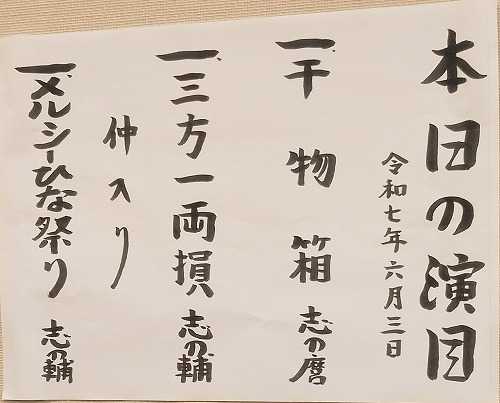 本日の演目
令和七年六月三日
一、干物箱 志の麿
一、三方一両損 志の輔
仲入り
一、メルシーひな祭り 志の輔